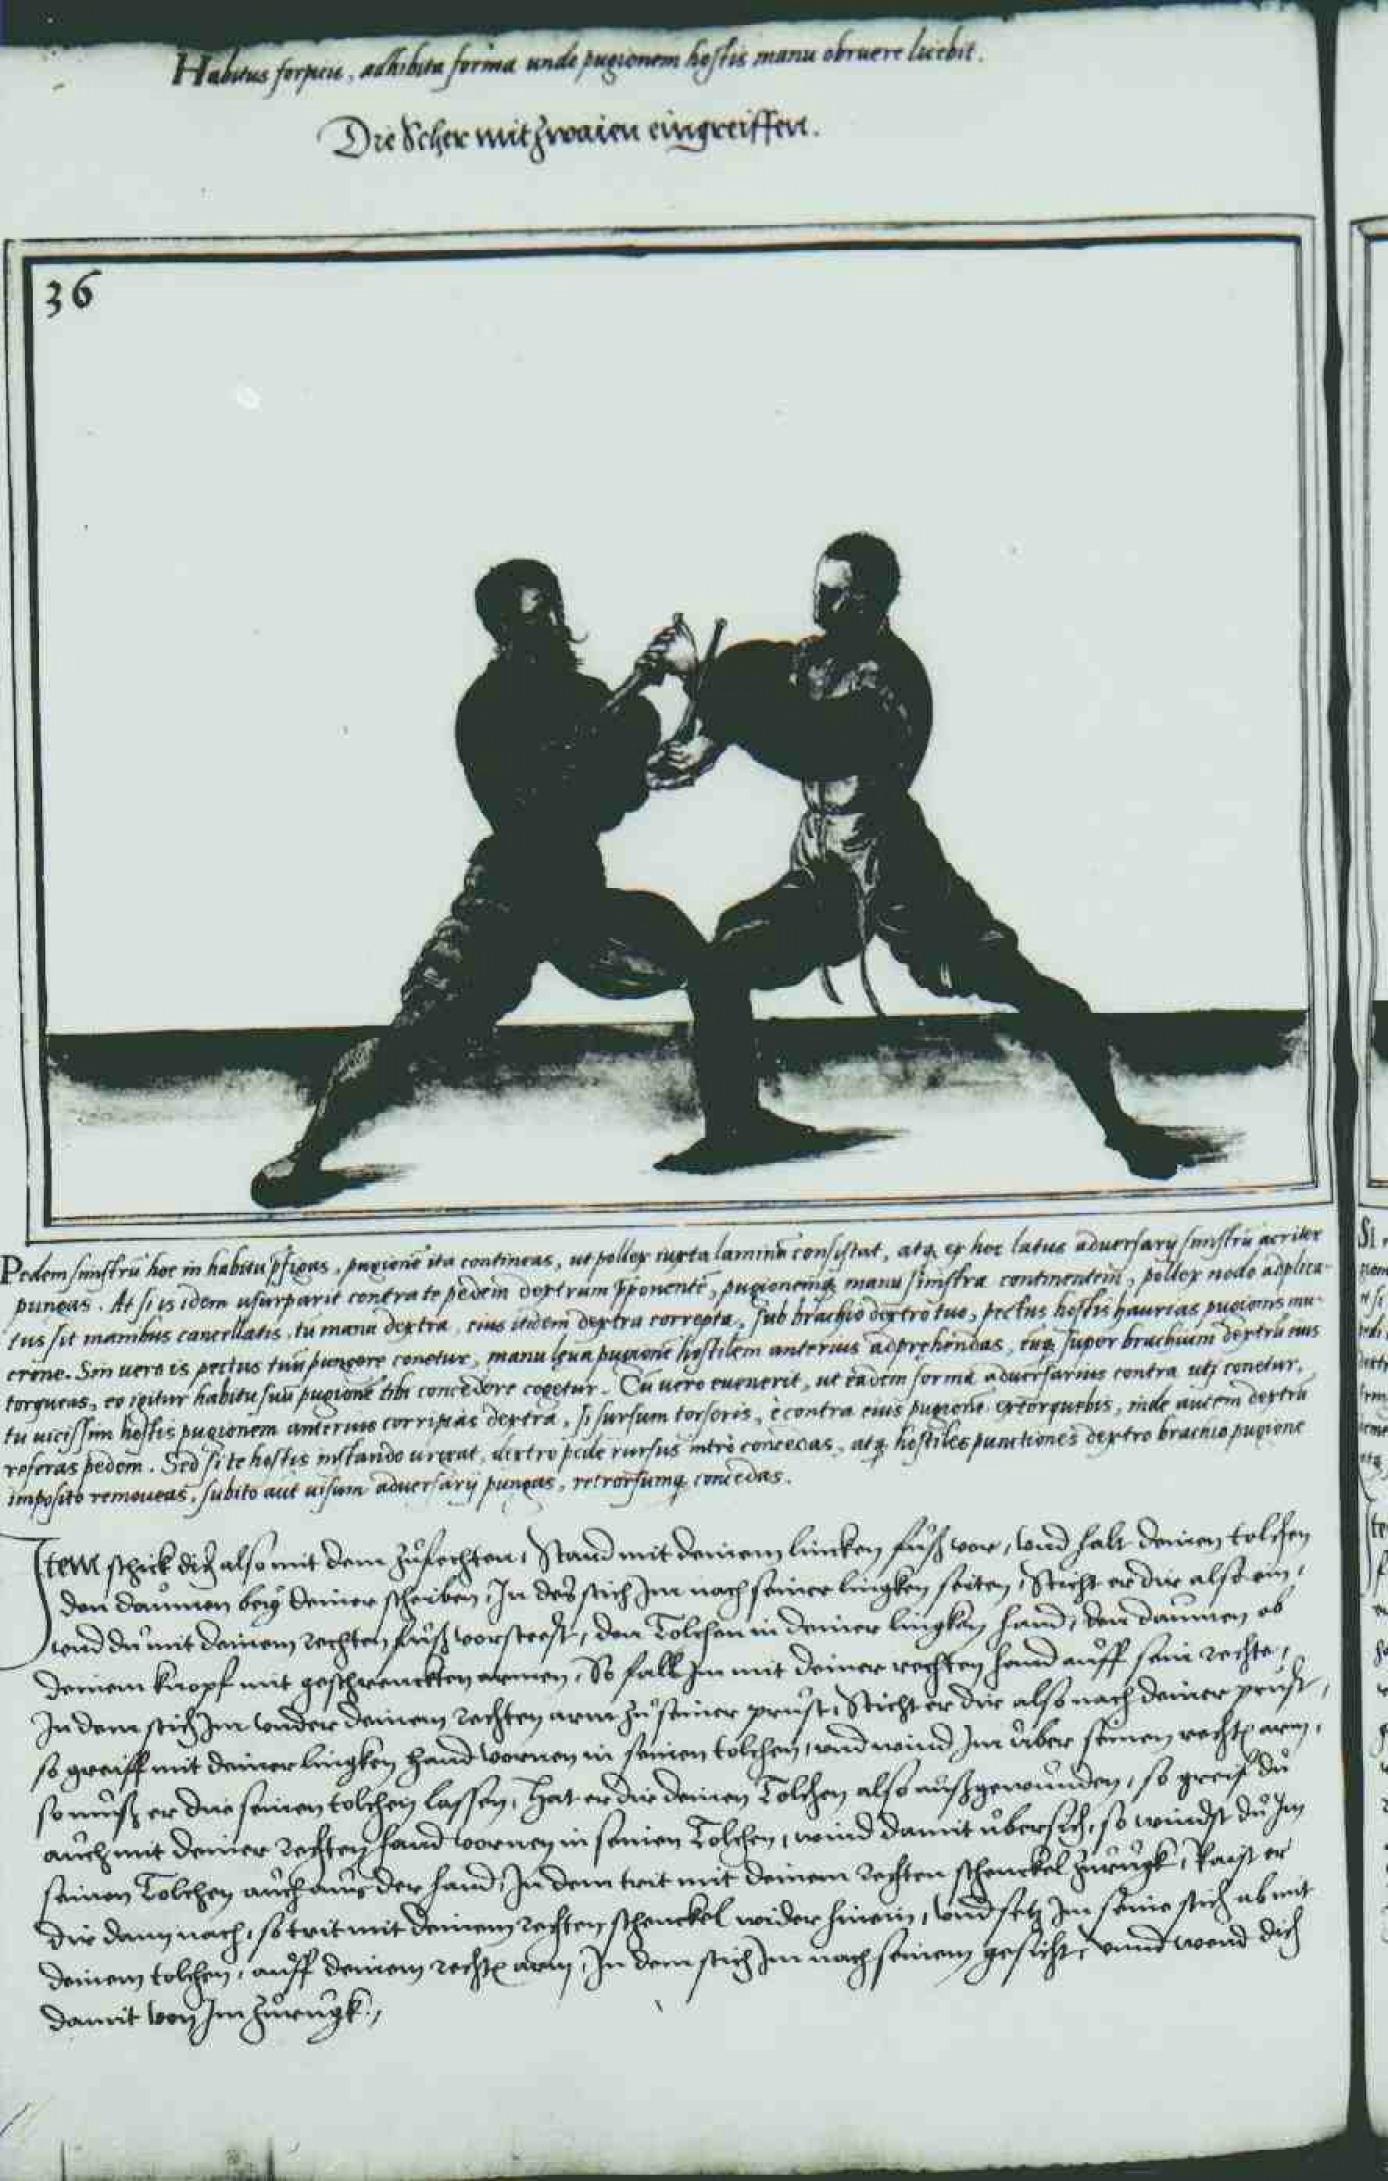 Habitus forpicis, adhibita forma unde pugionem hostis manu obruere licebit.
Die Scher mit zwaien eingreiffen.
36
Pedem sinistrū hoc in habitu p̄figas, pugionē ita contineas, ut pollex iuxta laminā consistat, atq; ex hoc latus adversarij sinistrū acriter
pungas. At si is idem usurparit contra te pedem dextrum p̄ponentē, pugionemq; manu sinistra continentem, pollex nodo adplica-
tus sit manibus cancellatis, tu manu dextra, eius itidem dextra correpta, sub brachio dextro tuo, pectus hostis haurias pugionis mu-
crone. Sin vero is pectus tuū pungere conetur, manu leva pugionē hostilem anterius adprehendas, eūq; super brachium dextrū eius
torqueas, eo igitur habitu suū pugionē tibi concedere cogetur. Cū vero evenerit, ut eadem forma adversarius contra uti conetur,
tu vicissim hostis pugionem anterius corripias dextra, si sursum torseris, e contra eius pugionē extorquebis, inde autem dextrū
referas pedem. Sed si te hostis instando urgeat, dextro pede rursus intro concedas, atq; hostiles punctiones dextro brachio pugione
imposito removeas, subito aut visum adversarij pungas, retrorsumq; concedas.
Item schick dich also mit dem zůfechten, Stand mit deinem lincken fůß vor, vnd halt deinen tolchen
den daůmen beÿ deiner scheiben, In des stich Im nach seiner lingken seiten, Sticht er dir also ein,
vnd du mit deinem rechten fůß vorsteest, den Tolchen in deiner lingken hand, den daumen ob
deinem knopf mit geschrenckten armen, So fall Im mit deiner rechten hand aůff sein rechte,
In dem stich Im vnder deinem rechten arm zů seiner prust, Sticht er dir also nach deiner průst,
so greiff mit deiner lingken hand vornen in seinen tolchen, vnd wind Im über seinen rechtē arm,
so můß er dir seinen tolchen lassen, Hat er dir deinen Tolchen also aůßgewunden, so greif dů
aůch mit deiner rechten hand vornen in seinen Tolchen, wind damit übersich, so windst dů Im
seinen Tolchen aůch aůs der hand, In dem trit mit deinem rechten schenckel zůrůgk, Raist er
dir dann nach, so trit mit deinem rechten schenckel wider hinein, vnd setz Im seine stich ab mit
deinem tolchen, aůff deinem rechtē arm, In dem stich Im nach seinem gesicht, vnnd wend dich
damit von Im zůrůgk.,